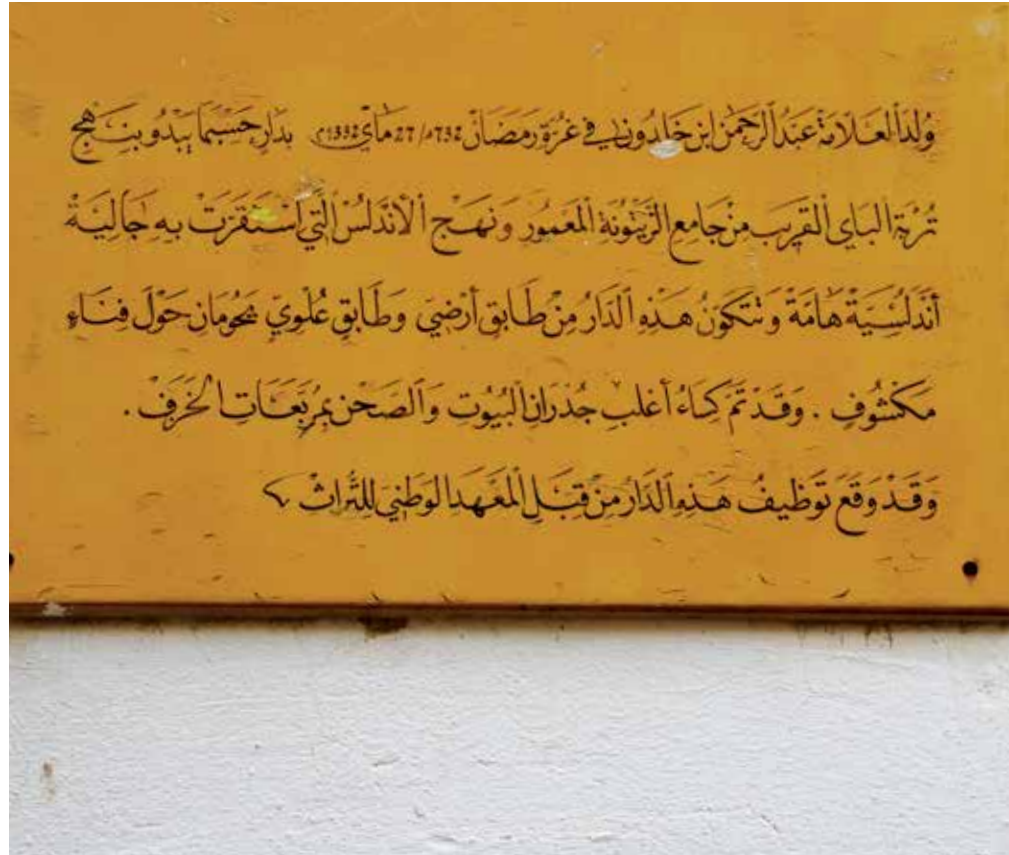 وُلِدَ العَلاَّمَةُ عَبْدُ الرَّحْمٰن ابن خَلدُون في غُرَّة رَمَضَانْ 732هـ/ 27 مَايْ 1332م بدَارٍ حَسْبَمَا يَبْدُو بِنَهْجِ
تُرْبَة البَاي القَريب منْ جَامع الزَّيْتُونَةِ المَعْمُور وَنَهْج الأنْدَلُسْ الَّتي اسْتَقَرَتْ به جَاليَةْ
أنْدَلُسيَةْ هَامَةْ وَتتَكَونُ هَذه الدَارُ مِنْ طَابق أرْضي وَطَابق عُلْويٍ يَحُومَان حَوْلَ فنَاءٍ
مَكْشُوفٍ . وَقَدْ تَمَ كسَاءُ أغلب جُدْرَان البُيُوت وَالصَحْن بمُرَبَعَات الخَزَفْ .
وَقَدْ وَقَعَ تَوْظيفُ هَذه الدَارُ منْ قِبَل المَعْهَد الوَطَني للتُّرَاثْ